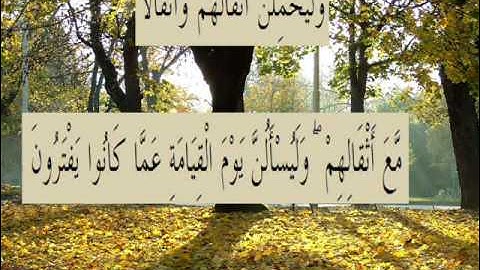 وَلَيَحْمِلُنَّ أَثْقَالَهُمْ وَأَثْقَالًا
مَّعَ أَثْقَالِهِمْ ۖ وَلَيُسْأَلُنَّ يَوْمَ الْقِيَامَةِ عَمَّا كَانُوا يَفْتَرُونَ